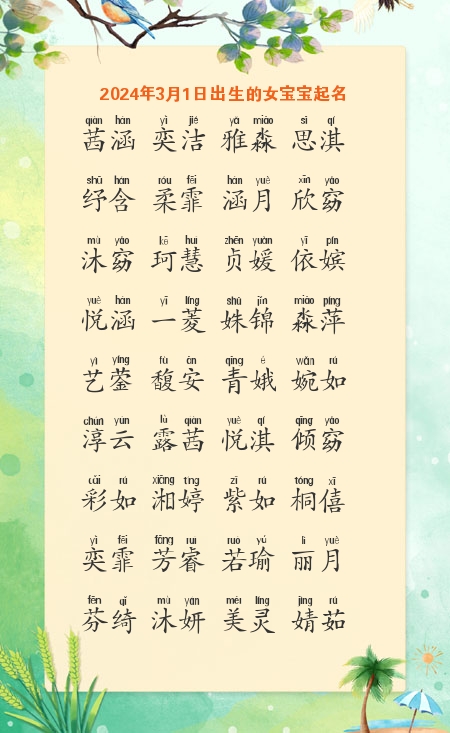 2024年3月1日出生的女宝宝起名
qiàn hán yì jié yǎ miǎo sī qí
茜涵 奕洁 雅淼 思淇
shū hán róu fēi hán yuè xīn yǎo
纾含 柔霏 涵月 欣窈
mù yǎo kē huì zhēn yuàn yī pín
沐窈 珂慧 贞媛 依嫔
yuè hán yī líng shū jǐn miǎo píng
悦涵 一菱 姝锦 淼萍
yì yíng fù ān qīng é wǎn rú
艺蓥 馥安 青娥 婉如
chún yún lù qiàn yuè qí qīng yǎo
淳云 露茜 悦淇 倾窈
cǎi rú xiāng tíng zǐ rú tóng xī
彩如 湘婷 紫如 桐僖
yì fēi fāng ruì ruò yú lì yuè
奕霏 芳睿 若瑜 丽月
fēn qǐ mù yán měi líng jìng rú
芬绮 沐妍 美灵 婧茹